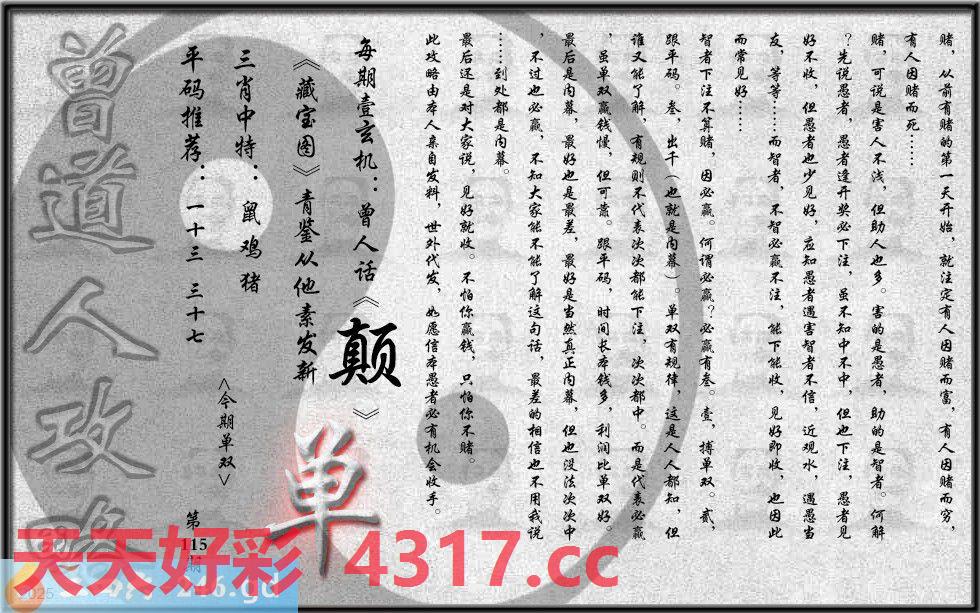 赌，从前有赌的第一天开始，就注定有人因赌而富，有人因赌而穷，
有人因赌而死……
赌，可说是害人不浅，但助人也多。害的是愚者，助的是智者。何解
？先说愚者，愚者逢开奖必下注，虽不知中不中，但也下注，愚者见
好不收，但愚者也少见好，应知愚者遇害智者不信，近观水，遇愚当
友，等等……而智者，不智必赢不注，能下能收，见好即收，也因此
而常见好……
智者下注不算赌，因必赢。何谓必赢？必赢有叁。壹，搏单双。贰，
跟平码。叁，出千（也就是内幕）。单双有规律，这是人人都知，但
谁又能了解，有规则不代表次次都能下注，次次都中。而是代表必赢
，虽单双赢钱慢，但可靠。跟平码，时间长本钱多，利润比单双好。
最后是内幕，最好也是最差，最好是当然真正内幕，但也没法次次中
，不过也必赢，不知大家能不能了解这句话，最差的相信也不用我说
……到处都是内幕。
最后还是对大家说，见好就收。不怕你赢钱，只怕你不赌。
此攻略由本人亲自发料，世外代发，如愿信本愚者必有机会收手。
每期壹玄机：曾人话《颠》
《藏宝图》青鉴从他素发新
单
三肖中特：鼠 鸡 猪
<今期单双>
平码推荐：一十三 三十七
第115期
曾道人攻略
天天好彩 4317.cc
2025